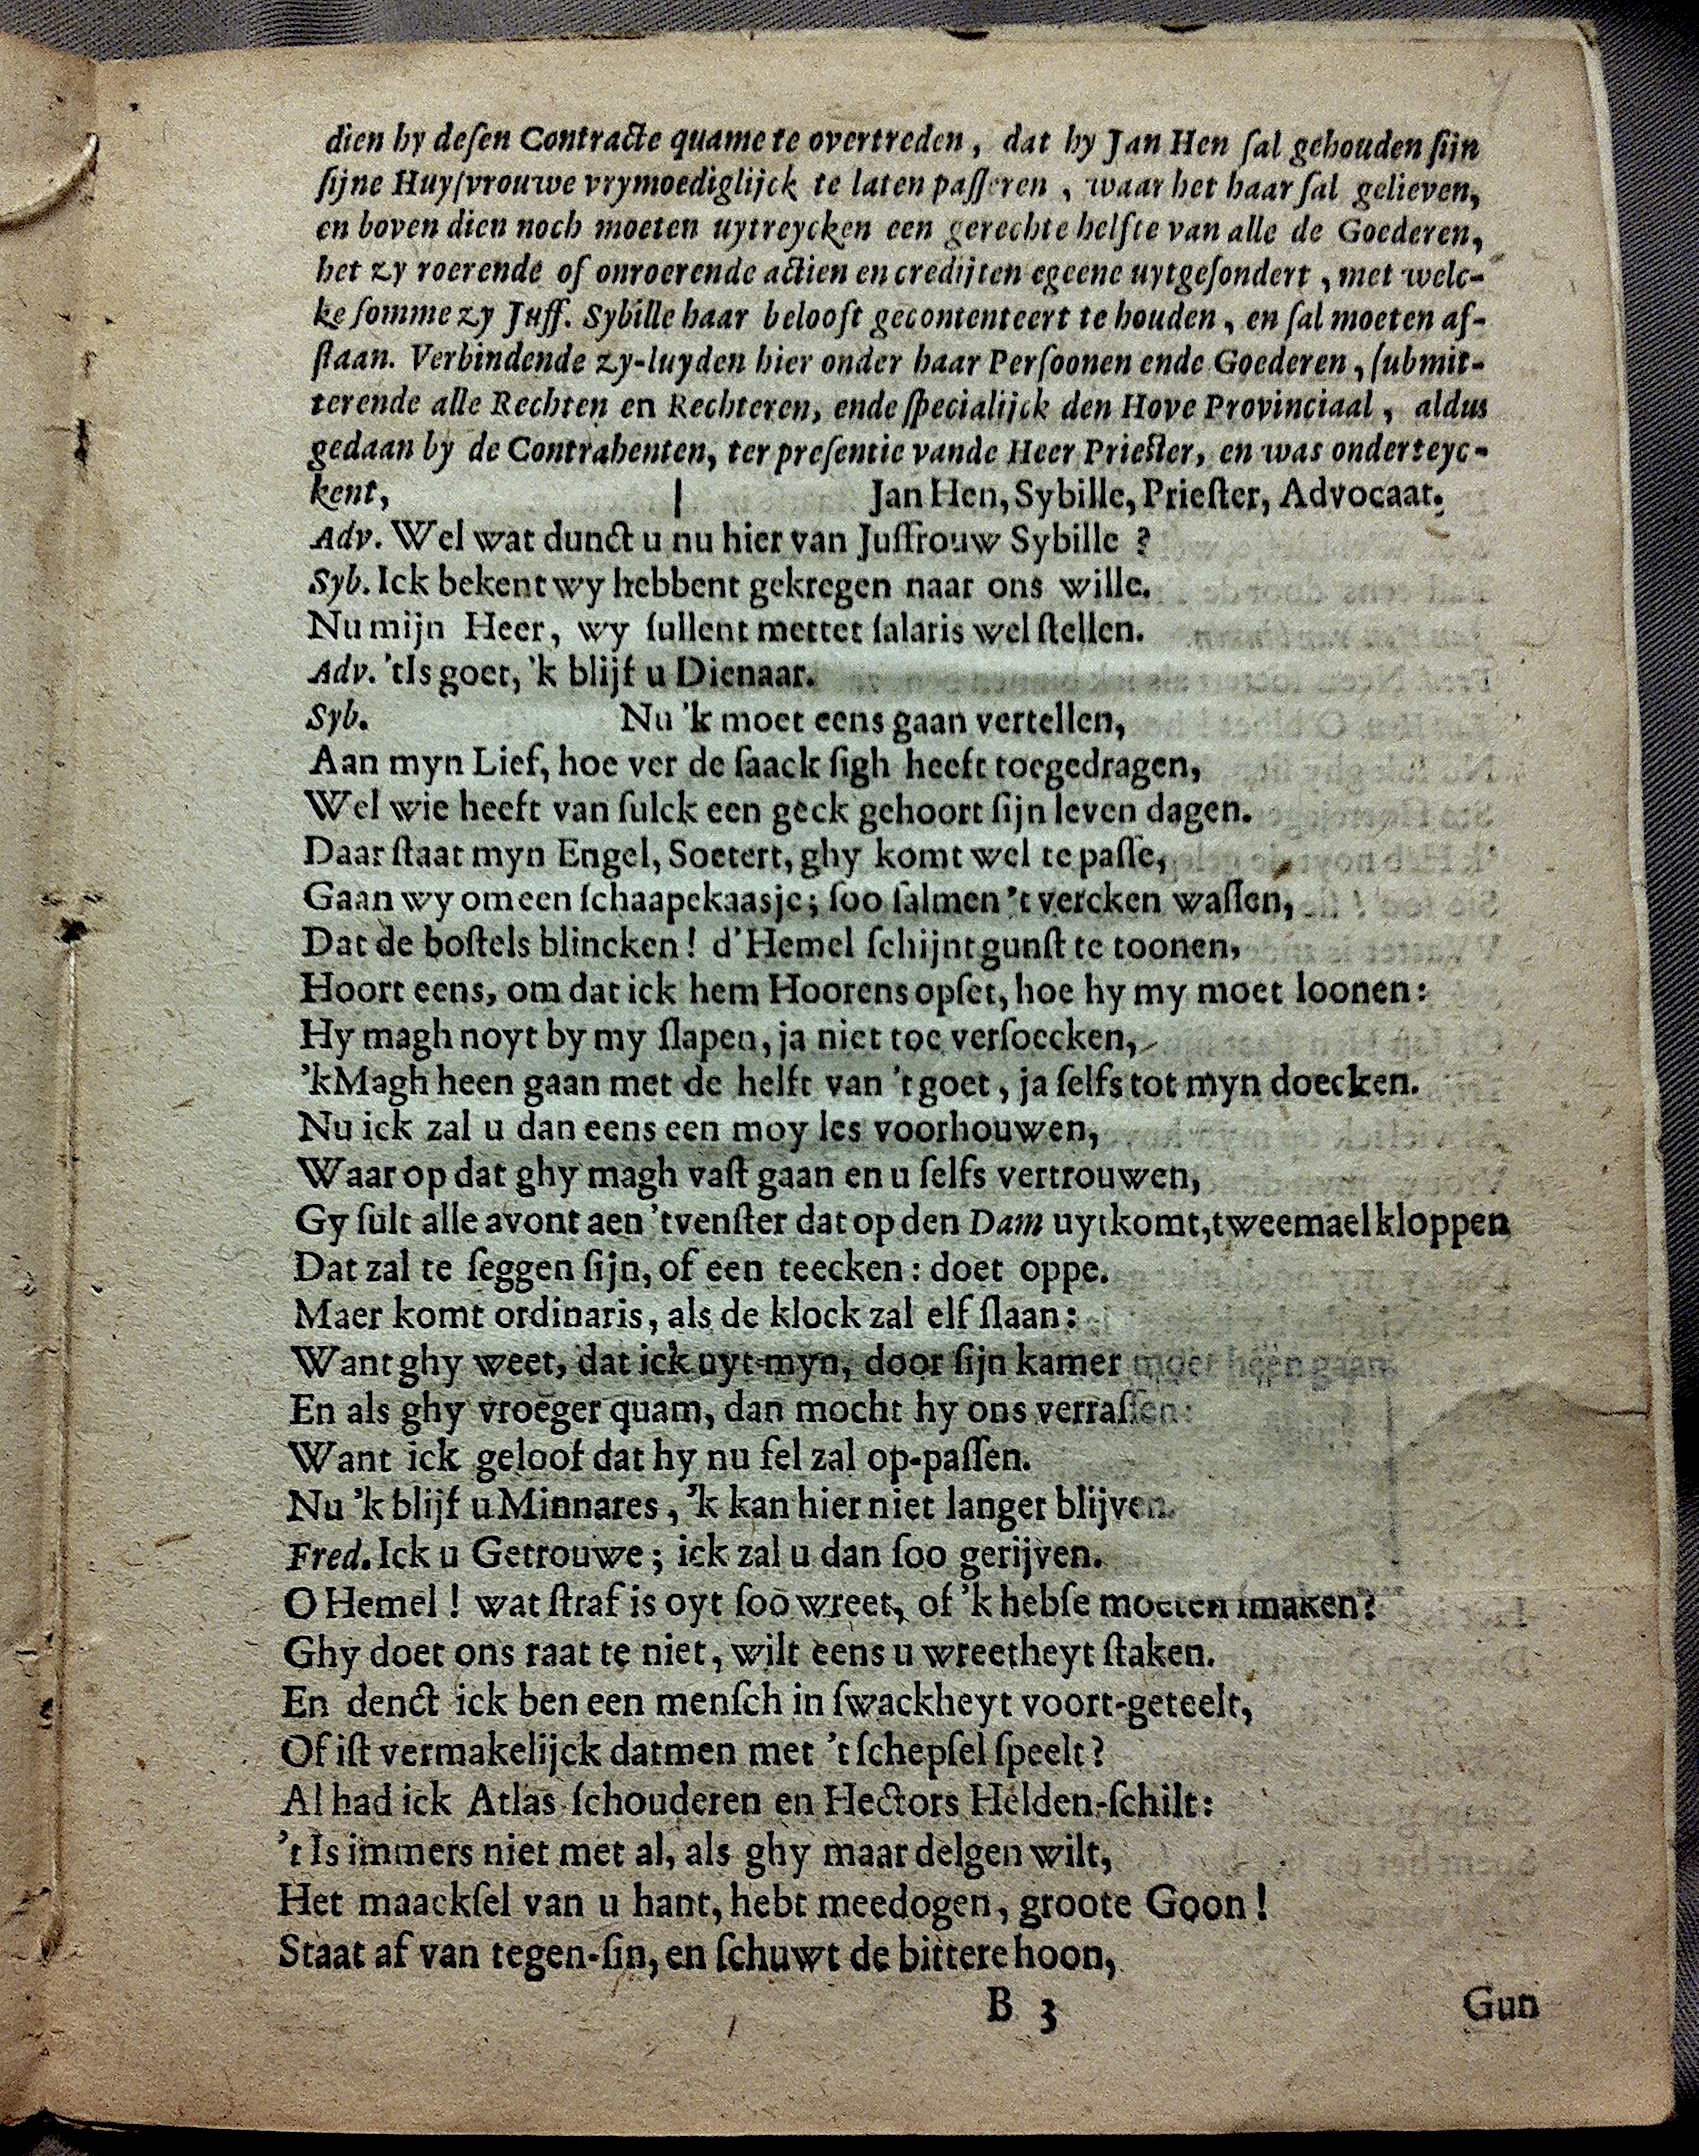 dien hy deſen Contracte quame te overtreden, dat hy Jan Hen ſal gehouden ſijn
ſijne Huyſvrouwe vrymoediglijck te laten paſſeren, waar het haar ſal gelieven,
en boven dien noch moeten uytreycken een gerechte helfte van alle de Goederen,
het zy roerende of onroerende actien en credijten egeene uytgeſondert, met welc-
ke ſomme zy Juff. Sybille haar belooft gecontenteert te houden, en ſal moeten af-
ſtaan. Verbindende zy-luyden hier onder haar Perſoonen ende Goederen, ſubmit-
terende alle Rechten en Rechteren, ende ſpecialijck den Hove Provinciaal, aldus
gedaan by de Contrahenten, ter preſentie vande Heer Prieſter, en was onderteyc-
kent, | Jan Hen, Sybille, Prieſter, Advocaat.
Adv. Wel wat dunct u nu hier van Juffrouw Sybille?
Syb. Ick bekent wy hebbent gekregen naar ons wille.
Nu mijn Heer, wy ſullent mettet ſalaris wel ſtellen.
Adv. 'tIs goet, 'k blijf u Dienaar.
Syb. Nu 'k moet eens gaan vertellen,
Aan myn Lief, hoe ver de ſaack ſigh heeft toegedragen,
Wel wie heeft van ſulck een geck gehoort ſijn leven dagen.
Daar ſtaat myn Engel, Soetert, ghy komt wel te paſſe,
Gaan wy om een ſchaapekaasje; ſoo ſalmen 't vercken waſſen,
Dat de boſtels blincken! d'Hemel ſchijnt gunſt te toonen,
Hoort eens, om dat ick hem Hoorens opſet, hoe hy my moet loonen:
Hy magh noyt by my ſlapen, ja niet toe verſoecken,
'kMagh heen gaan met de helft van 't goet, ja ſelfs tot myn doecken.
Nu ick zal u dan eens een moy les voorhouwen,
Waar op dat ghy magh vaſt gaan en u ſelfs vertrouwen,
Gy ſult alle avont aen 'tvenſter dat op den Dam uytkomt, tweemael kloppen
Dat zal te ſeggen ſijn, of een teecken: doet oppe.
Maer komt ordinaris, als de klock zal elf ſlaan:
Want ghy weet, dat ick uyt myn, door ſijn kamer moet heen gaan
En als ghy vroeger quam, dan mocht hy ons verraſſen:
Want ick geloof dat hy nu fel zal op-paſſen.
Nu 'k blijf u Minnares, 'k kan hier niet langer blijven.
Fred. Ick u Getrouwe; ick zal u dan ſoo gerijven.
O Hemel! wat ſtraf is oyt ſoo wreet, of 'k hebſe moeten ſmaken?
Ghy doet ons raat te niet, wilt eens u wreetheyt ſtaken.
En denct ick ben een menſch in ſwackheyt voort-geteelt,
Of iſt vermakelijck datmen met 't ſchepſel ſpeelt?
Al had ick Atlas ſchouderen en Hectors Helden-ſchilt:
't Is immers niet met al, als ghy maar delgen wilt,
Het maackſel van u hant, hebt meedogen, groote Goon!
Staat af van tegen-ſin, en ſchuwt de bittere hoon,
B 3 Gun